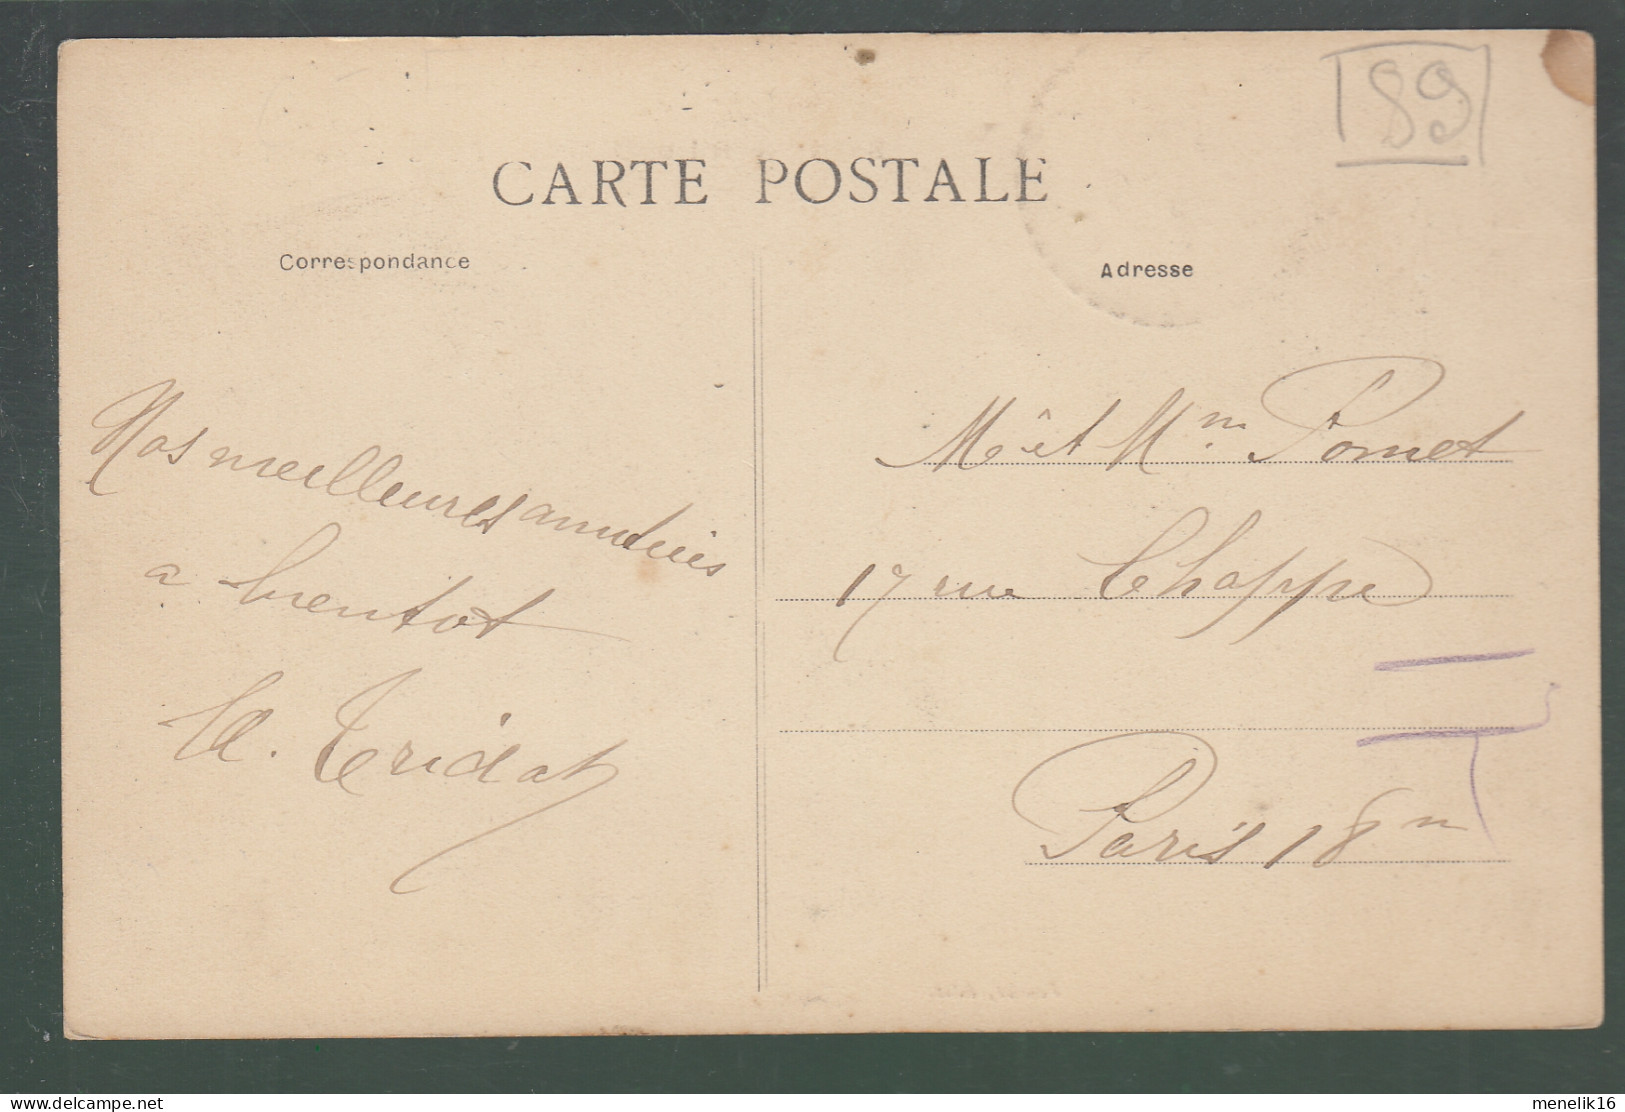 89
CARTE POSTALE
Correspondance
Adresse
Nos meilleures amitiés
a bientot
Tridat
Mr et Mm Pomet
17 rue Chappe
Paris 18m
www.delcampe.net
menelik16